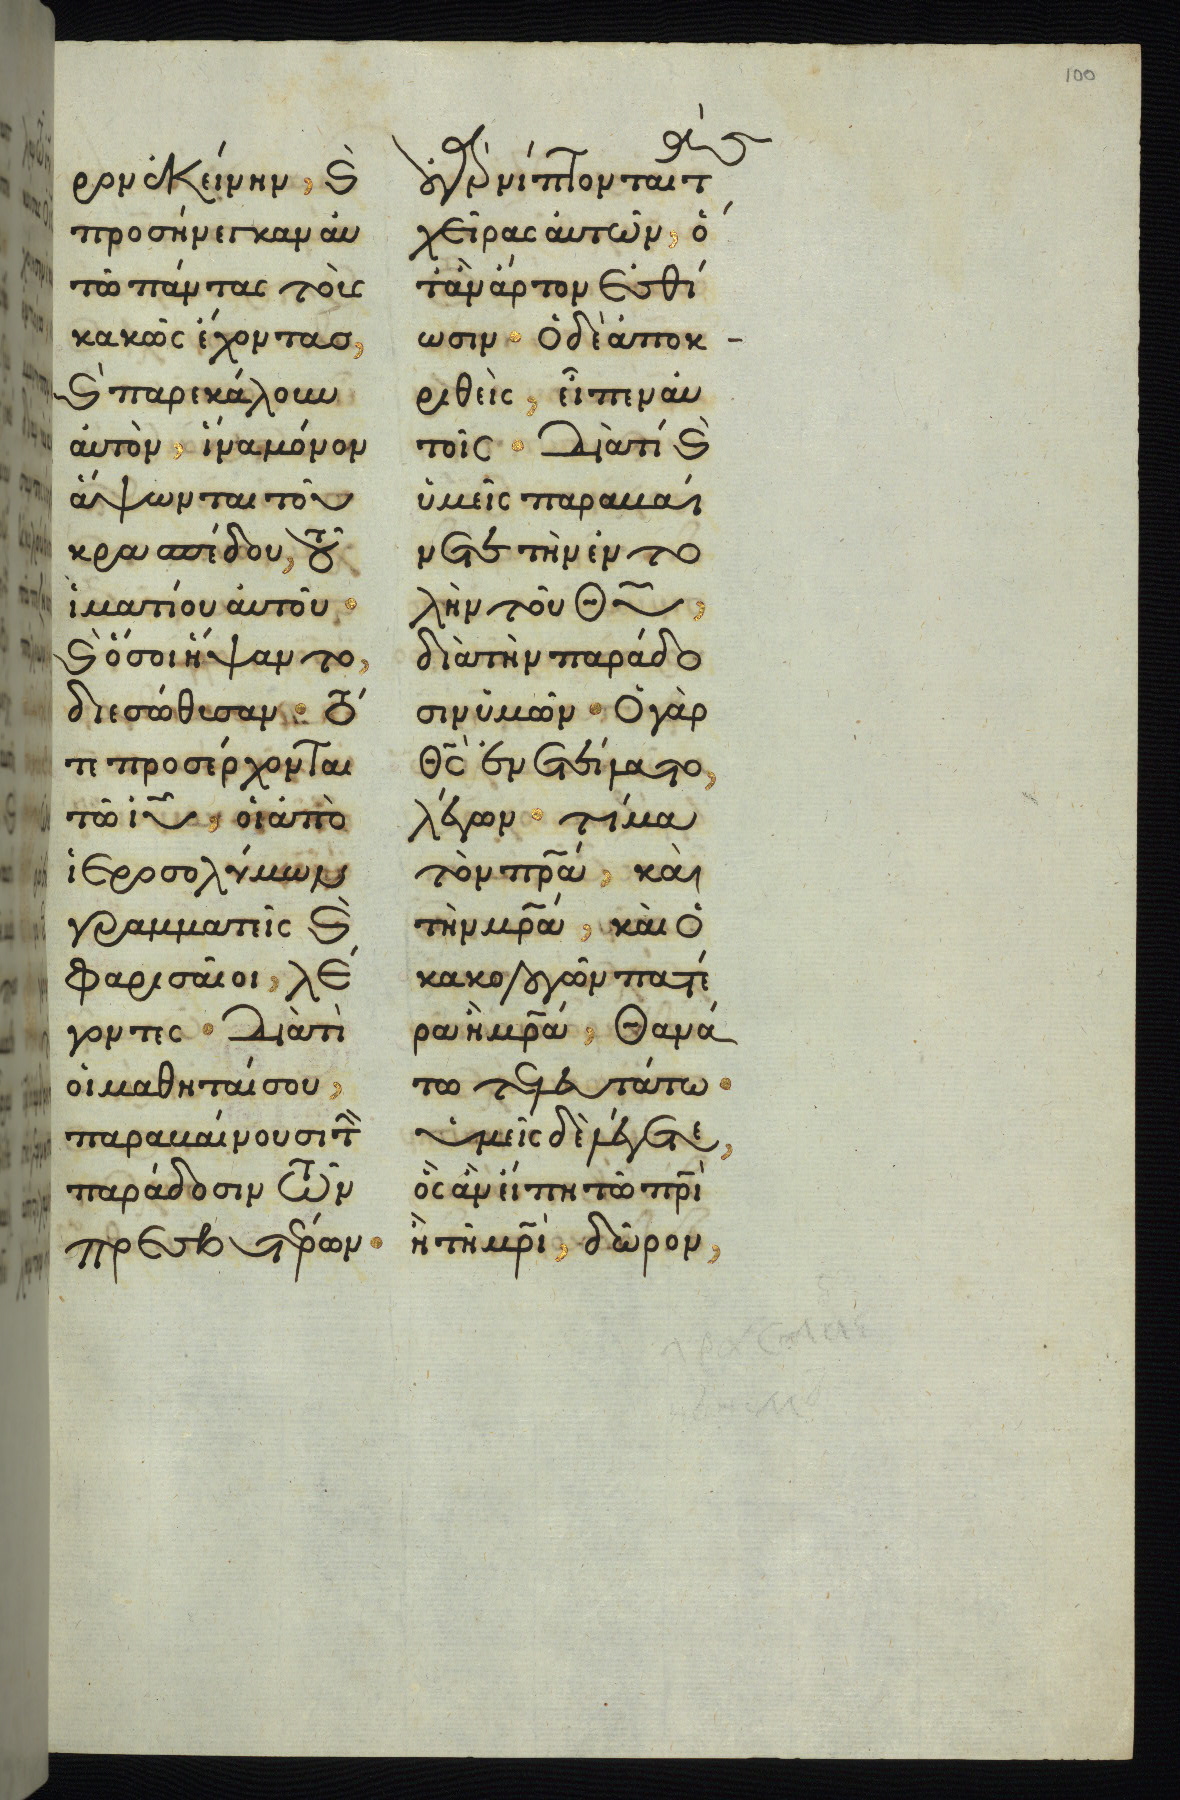 100
ρον ἐκείνην, ϗ
προσήνεγκαν ἀυ
τῶ πάντας τοὺς
κακῶς ἔχοντασ,
ϗ παρεκάλουν
ἀυτὸν, ἵνα μόνον
ἅψωνται τοῦ
κρασπέδου, τοῦ
ἱματίου ἀυτοῦ·
ϗ ὅσοι ἥψαντο,
διεσώθισαν· Τό
τε προσέρχονται
τῶ ιυ̅, οἱ ἀπὸ
ἱεροσολύμων
γραμματεῖς ϗ
φαρισαῖοι, λέ
γοντες· Διὰτὶ
οἱ μαθηταί σου,
παραβαίνουσι τὴν
παράδοσιν τῶν
πρεσβυτέρων·
οὐ γὰρ νίπτονται τὰς
χεῖρας ἀυτῶν, ὅ
τὰν ἄρτον ἐσθί
ωσιν· Ὁ δὲ ἀποκ-
ριθεὶς, εἶπεν ἀυ
τοῖς· Διὰτί ϗ
ὑμεῖς παραβαί
νετε τὴν ἐντο
λὴν τοῦ Θυ̅,
διὰ τὴν παράδο
σιν ὑμῶν· Ὁ γὰρ
Θς̅ ἐνετείλατο,
λέγων· τίμα
τὸν πρ̅α, καὶ
τὴν μρ̅α, καὶ ὁ
κακολογῶν πατέ
ρα ἢ μρ̅α, Θανά
τω τελευτάτω·
ὑμεῖς δὲ λέγετε,
ὃς ἂν εἴπη τῶ πρ̅ὶ
ἢ τῆ μρ̅ὶ, δῶρον,